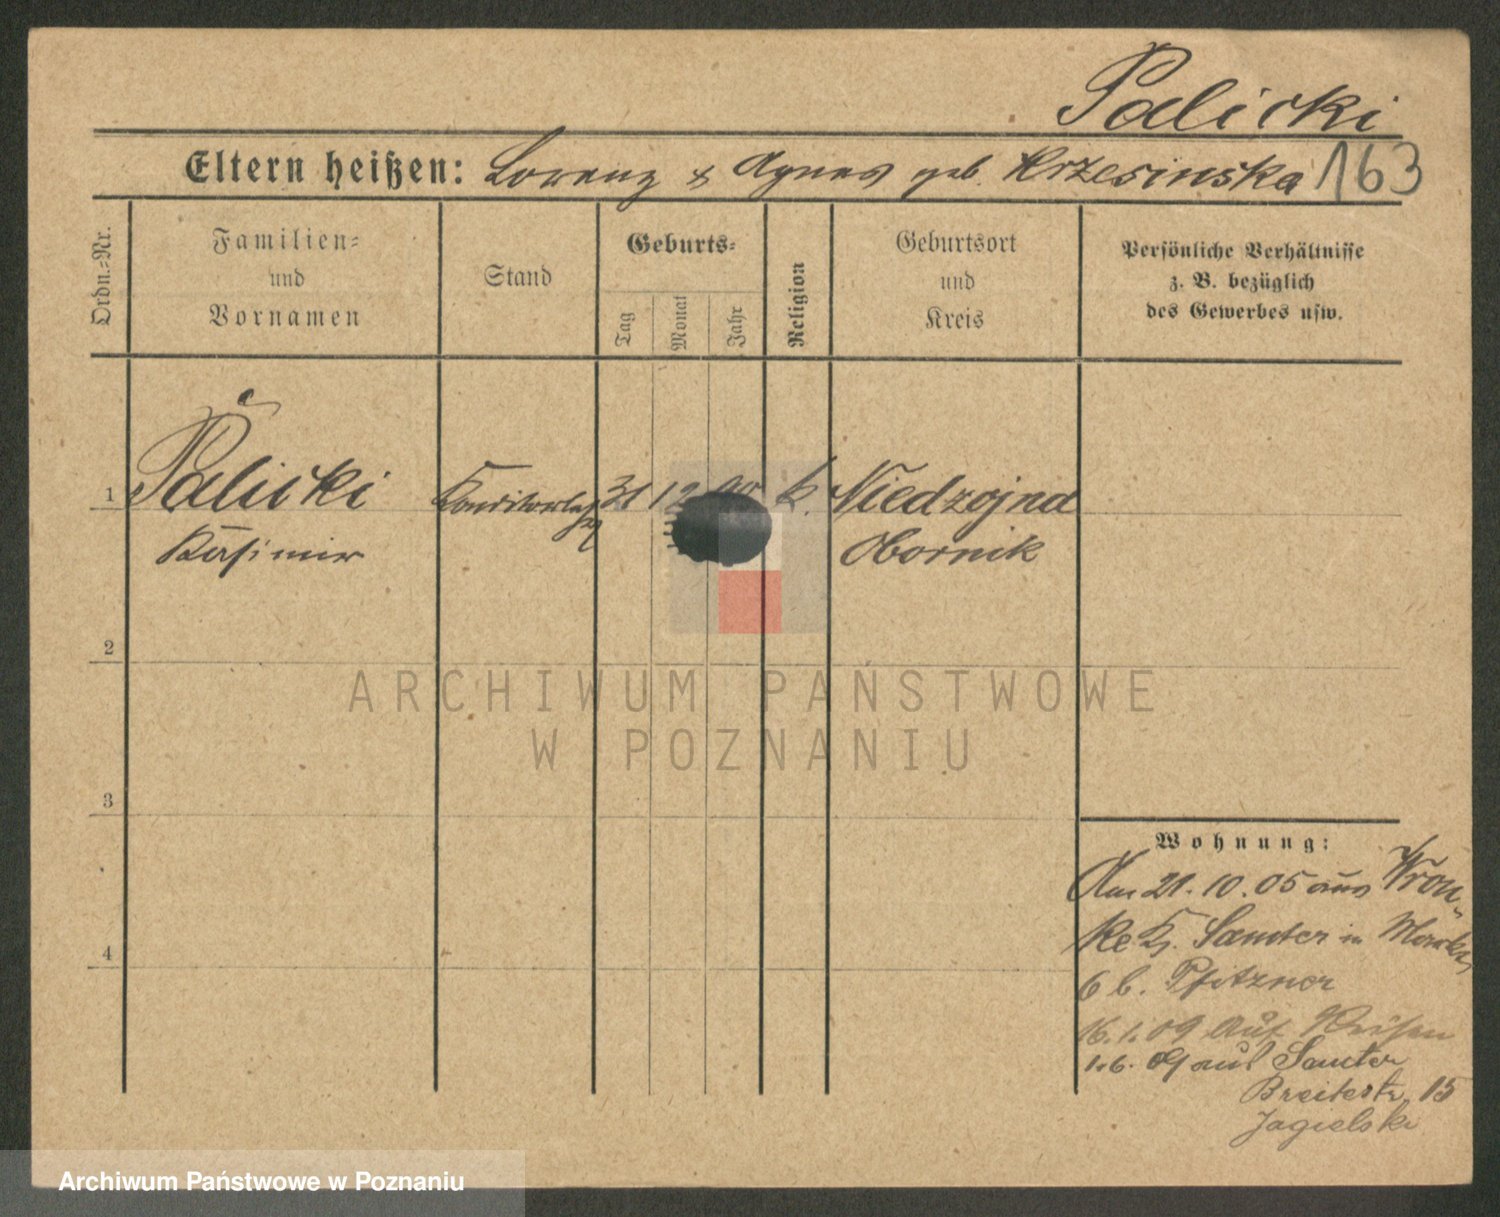 Palicki
Eltern heißen: Lorenz & Agnes geb. Krzesinska 163
Ordn.-Nr.
Familien-
und
Vornamen
Stand
Geburts-
Tag
Monat
Jahr
Religion
Geburtsort
und
Kreis
Persönliche Verhältnisse
z. B. bezüglich
des Gewerbes usw.
1 Palicki 31 12 90 k.
Kasimir Obornik
2
ARCHIWUM PAŃSTWOWE
W POZNANIU
3
Wohnung:
Am 21. 10. 05 aus Wron-
ke Kr. Samter in
4
6 b. Pfitzner
16. 1. 09 Auf Reisen
1. 6. 09 aus Samter
Breitestr. 15
Jagielski
Archiwum Państwowe w Poznaniu